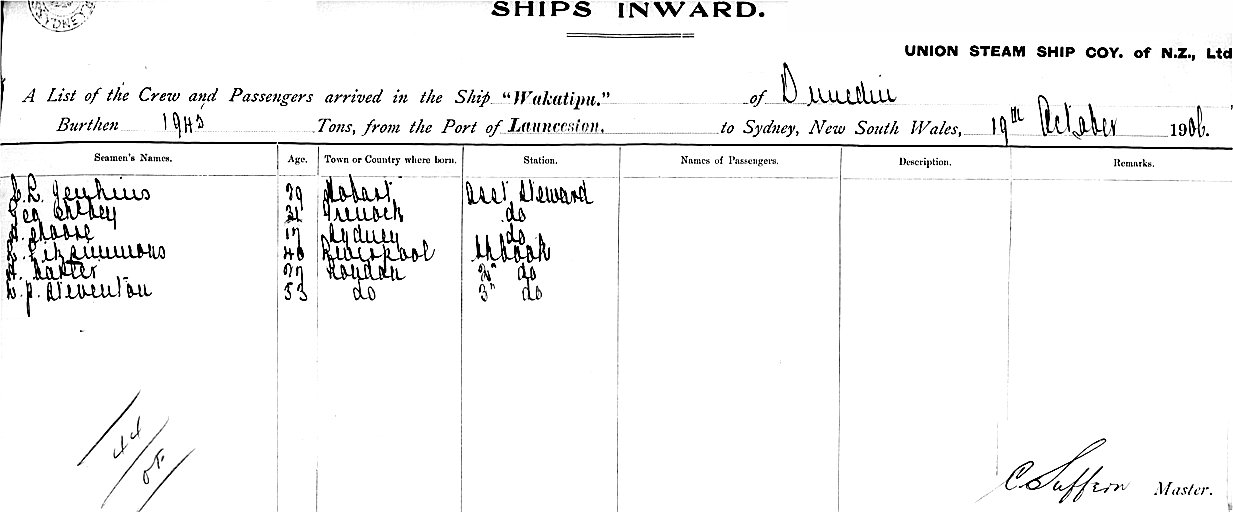 SYDNEY
SHIPS INWARD.
UNION STEAM SHIP COY. of N.Z., Ltd
A List of the Crew and Passengers arrived in the Ship "Wakatipu." of Dunedin
Burthen 1945 Tons, from the Port of Launceston, to Sydney, New South Wales, 19th October 1906.
Seamen's Names. Age. Town or Country where born. Station. Names of Passengers. Description. Remarks.
Jenkins 29 Hobart Asst Steward
Geo 31 French do
H. Moore 17 Sydney do
Fitzsimmons 40 Liverpool Ch Cook
H. Baxter 27 London 2n do
W. P. Steventon 53 do 3n do
44
C Suffern Master.